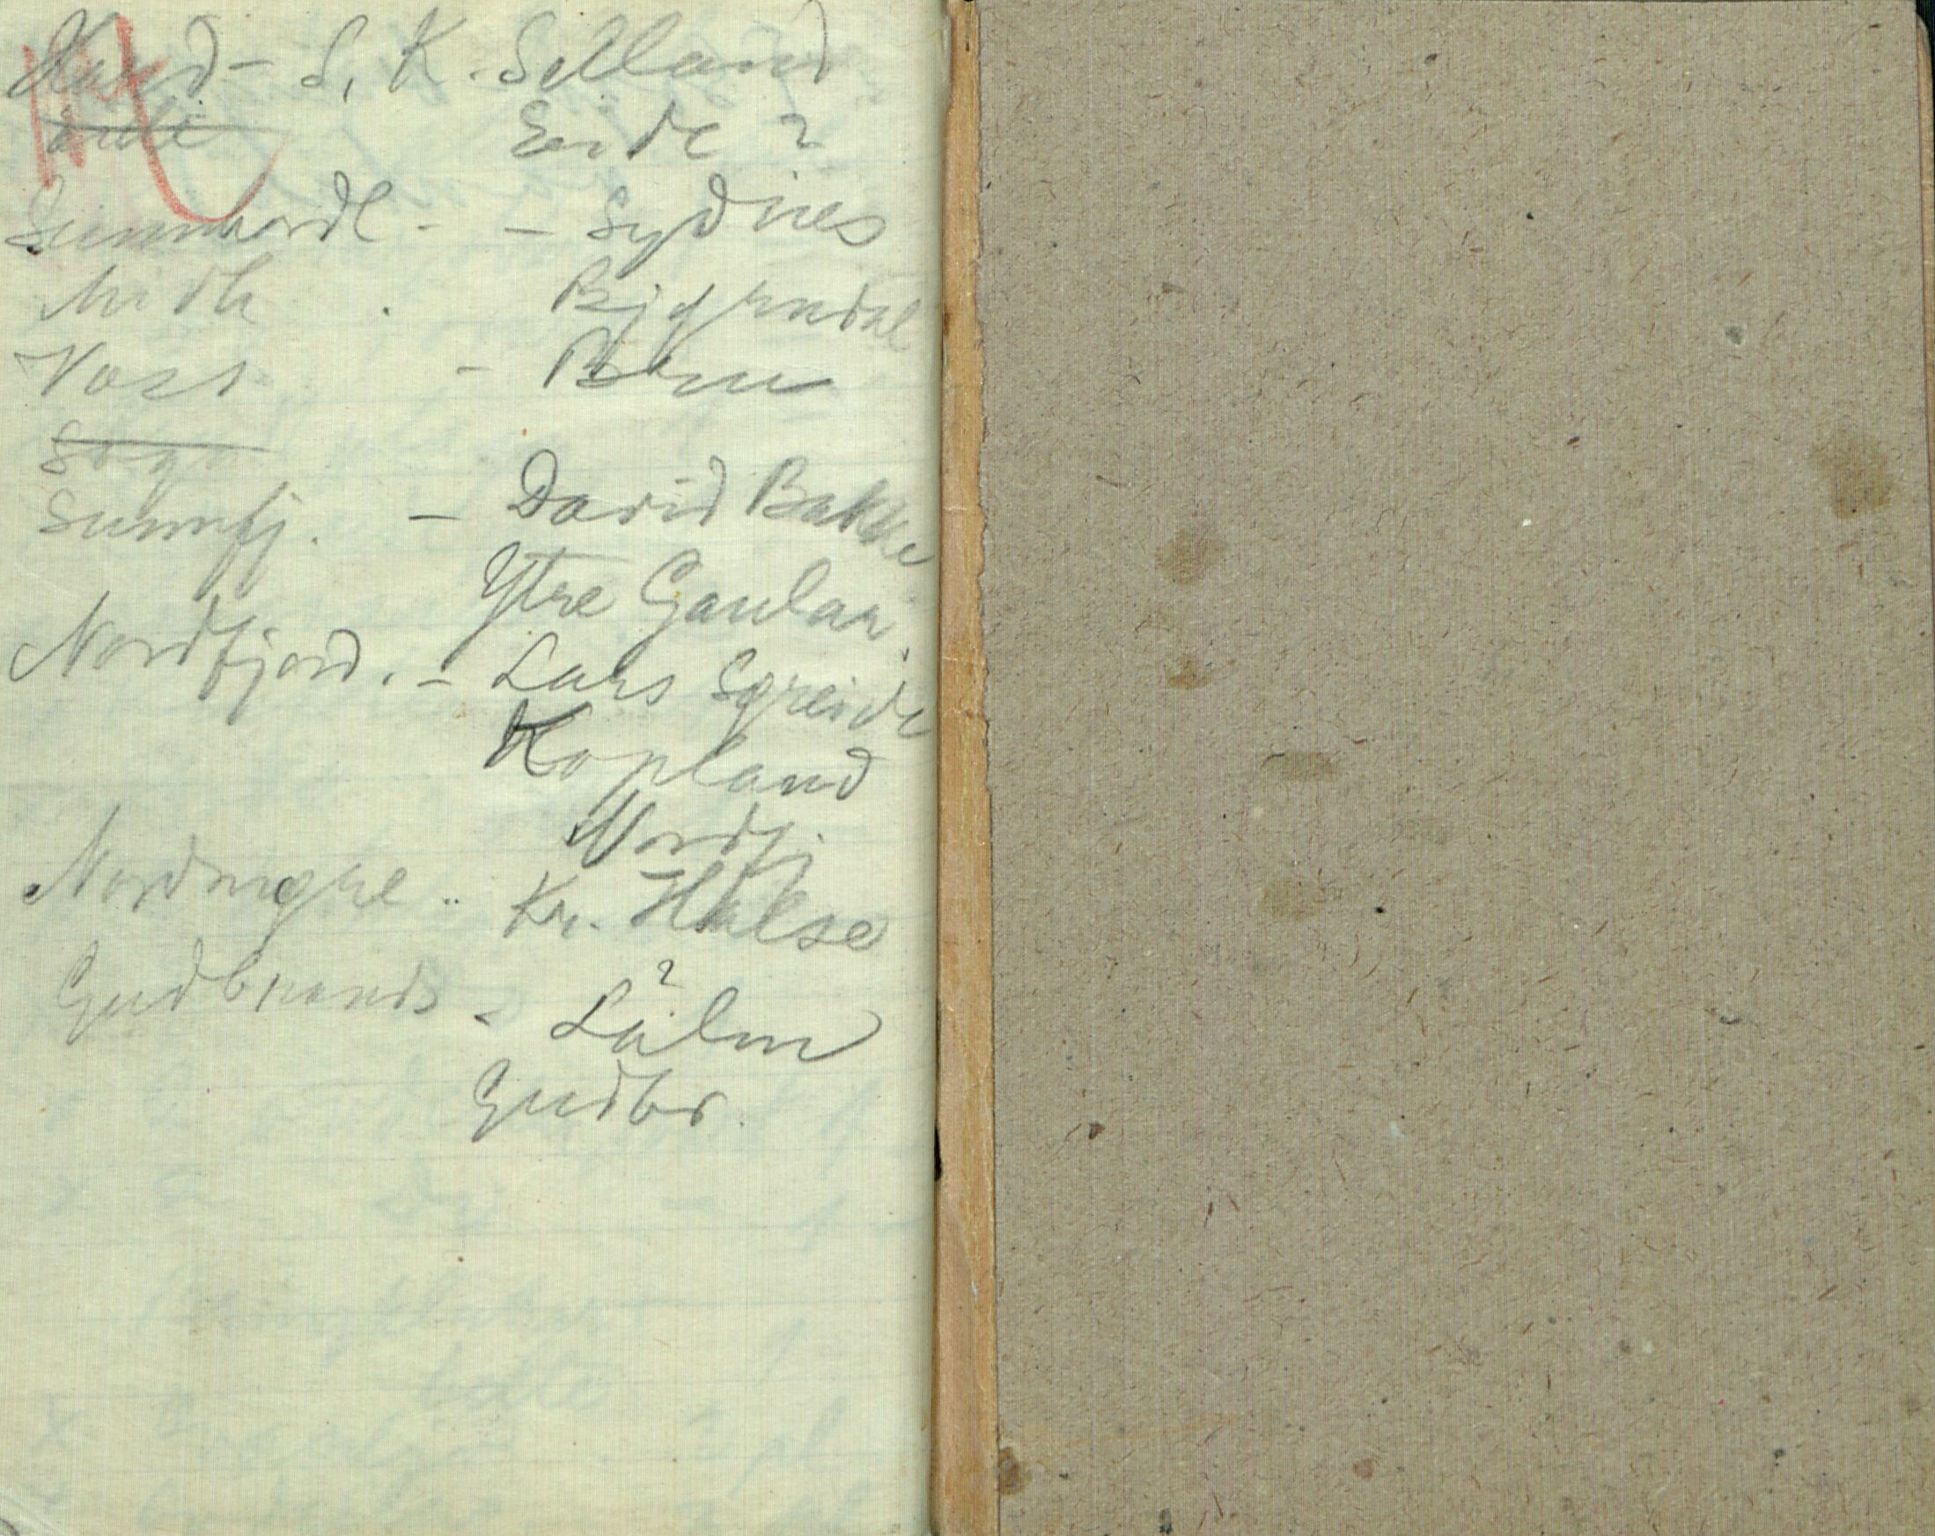 Hard - S. K. Selland
Eide ?
Sunnhordl. - - Sydnes
Midh . Bjørndal
Voss - Brn
Sogn
Sunnfj. - David Bakke
Ytre Gaular.
Nordfjord. - Lars Søreide
Hopland
Nordfj.
Nordmøre .. Kr. Halse
Gudbrands - Lålm ?
Gudbr.